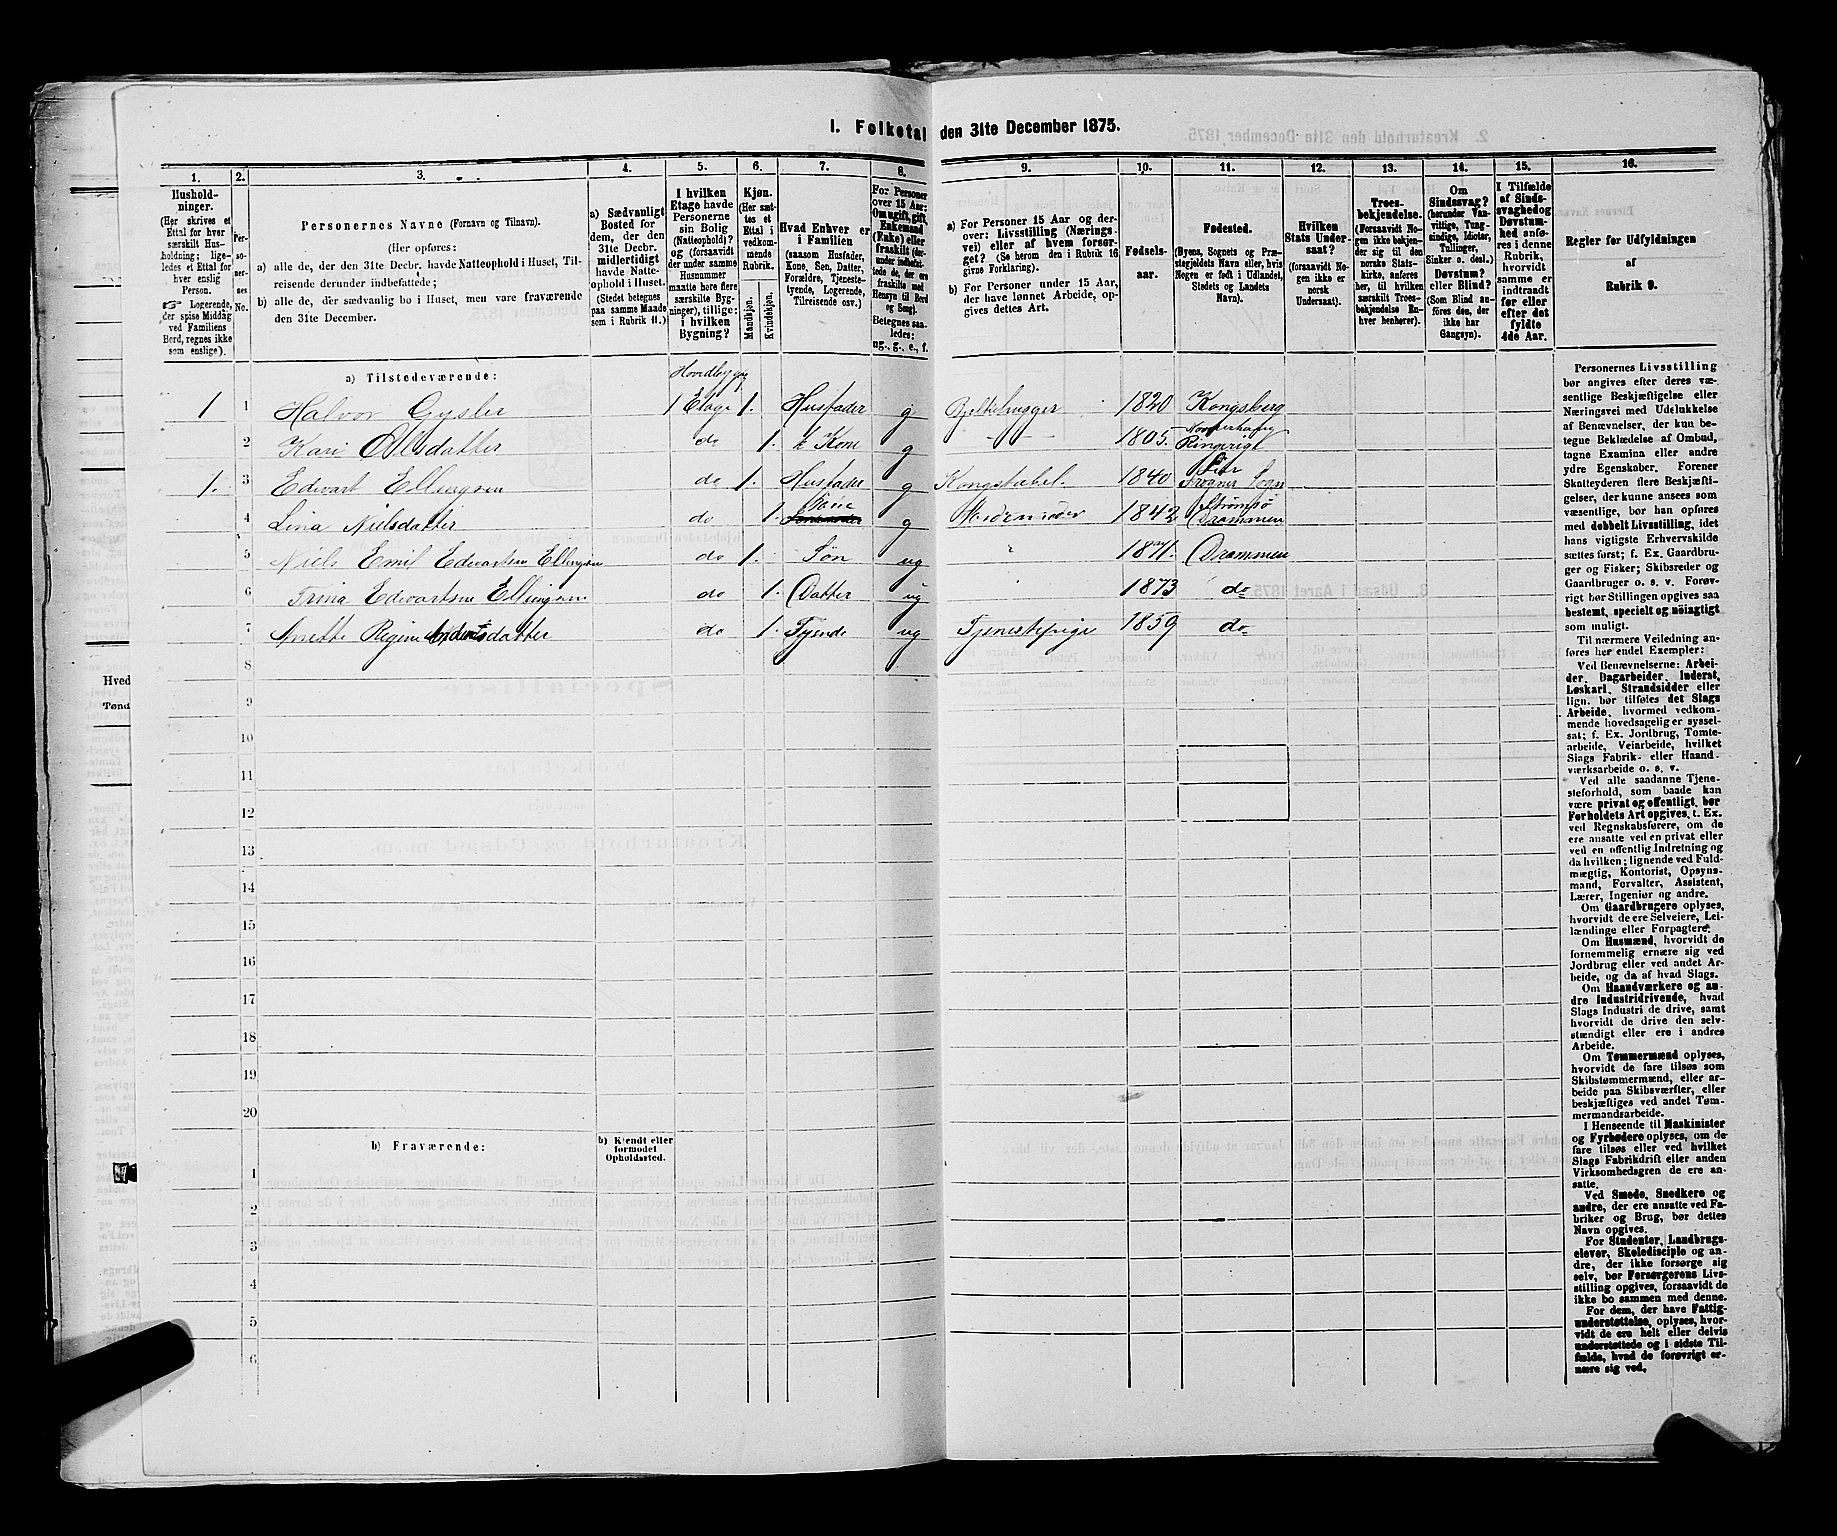 1. Folketal den 31te December 1875.
1. 2. 3. 4. 5. 6. 7. 8. 9. 10. 11. 12. 13. 14. 15. 16.
Hushold-
ninger.
(Her skrives et
Ettal for hver
særskilt Hus-
holdning; lige-
ledes et Ettal for
hver enslig
Person.
☞ Logerende,
der spise Middag
ved Familiens
Bord, regnes ikke
som enslige).
Per-
so-
ner-
nes
No.
Personernes Navne (Fornavn og Tilnavn).
(Her opføres:
a) alle de, der den 31te Decbr. havde Natteophold i Huset, Til-
reisende derunder indbefattede;
b) alle de, der sædvanlig bo i Huset, men vare fraværende
den 31te December.
a) Sædvanligt
Bosted for
dem, der den
31te Decbr.
midlertidigt
havde Natte-
ophold i Huset.
(Stedet betegnes
paa samme Maade
som i Rubrik 11.)
I hvilken
Etage havde
Personerne
sin Bolig
(Natteophold)?
(forsaavidt
der under samme
Husnummer
maatte høre flere
særskilte Byg-
ninger), tillige:
i hvilken
Bygning?
Kjøn.
(Her sæt-
tes et
Ettal i
vedkom-
mende
Rubrik.
Mandkjøn.
Kvindekjøn.
Hvad Enhver er
i Familien
(saasom Husfader,
Kone, Søn, Datter,
Forældre, Tjeneste-
tyende, Logerende,
Tilreisende osv.)
For Personer
over 15 Aar:
Om ugift, gift,
Enkemand
(Enke) eller
fraskilt (der-
under indbefat-
tede de, der ere
fraskilte med
Hensyn til Bord
og Seng).
Betegnes saa-
ledes:
ug., g., e., f.
a) For Personer 15 Aar og der-
over: Livsstilling (Nærings-
vei) eller af hvem forsør-
get? (Se herom den i Rubrik 16
givne Forklaring).
b) For Personer under 15 Aar,
der have lønnet Arbeide, op-
gives dettes Art.
Fødsels-
aar.
Fødested.
(Byens, Sognets og Præ-
stegjeldets Navn eller, hvis
Nogen er født i Udlandet,
Stedets og Landets
Navn).
Hvilken
Stats Under-
saat?
(forsaavidt No-
gen ikke er
norsk
Undersaat).
Troes-
bekjendelse.
(Forsaavidt No-
gen ikke bekjen-
der sig til den
norske Stats-
kirke, anføres
her, til hvilken
særskilt Troes-
bekjendelse En-
hver henhører).
Om
Sindssvag?
(herunder Van-
vittige, Tung-
sindige, Idioter,
Tullinger,
Sinker o. desl.)
Døvstum?
eller Blind?
(Som Blind an-
føres den, der
ikke har
Gangsyn).
I Tilfælde
af Sinds-
svaghed og
Døvstum-
hed anfø-
res i denne
Rubrik,
hvorvidt
samme er
indtraadt
før eller
efter det
fyldte
4de Aar.
Regler for Udfyldningen
af
Rubrik 9.
a) Tilstedeværende:
1 1 Halvor Gysler 1 Etage 1. Husfader g 1820 Kongsberg
2 Kari Olsdatter do 1. Kone g 1805. Ringerige
1. 3 Edvart Ellingsen do 1. Husfader g Kongstabel 1840 Lier Frogner Sogn
4 Lina Nielsdatter do 1. Kone g 1842 Strømsø Drammen
5 Niels Emil Edvartsen Ellingsen do 1. Søn ug 1871. Drammen
6 Trina Edvartsen Ellingsen do 1. Datter ug 1873 do
7 Anette Regine do 1. Tyende ug Tjenestepige 1859 do
8
9
10
11
12
13
14
15
16
17
18
19
20
b) Fraværende:
b) Kjendt eller
formodet
Opholdssted.
1
2
3
4
5
6
Personernes Livsstilling
bør angives efter deres væ-
sentlige Beskjæftigelse eller
Næringsvei med Udelukkelse
af Benævnelser, der kun be-
tegne Beklædelse af Ombud,
tagne Examina eller andre
ydre Egenskaber. Forener
Skatteyderen flere Beskjæfti-
gelser, der kunne ansees som
væsentlige, bør han opføres
med dobbelt Livsstilling, idet
hans vigtigste Erhvervskilde
sættes først; f. Ex. Gaardbru-
ger og Fisker; Skibsreder og
Gaardbruger o. s. v. Forøv-
rigt bør Stillingen opgives saa
bestemt, specielt og nøiagtigt
som muligt.
Til nærmere Veiledning an-
føres her endel Exempler:
Ved Benævnelserne: Arbei-
der, Dagarbeider, Inderst,
Løskarl, Strandsidder eller
lign. bør tilføies det Slags
Arbeide, hvormed vedkom-
mende hovedsagelig er syssel-
sat; f. Ex. Jordbrug, Tomte-
arbeide, Veiarbeide, hvilket
Slags Fabrik- eller Haand-
værksarbeide o. s. v.
Ved alle saadanne Tjene-
steforhold, som baade kan
være privat og offentligt, bør
Forholdets Art opgives, t. Ex.
ved Regnskabsførere, om de
ere ansatte ved en privat eller
ved en offentlig Indretning og
da hvilken; lignende ved Fuld-
mægtig, Kontorist, Opsyns-
mand, Forvalter, Assistent,
Lærer, Ingeniør og andre.
Om Gaardbrugere oplyses,
hvorvidt de ere Selveiere, Lei-
lændinge eller Forpagtere.
Om Husmænd, hvorvidt de
fornemmelig ernære sig ved
Jordbrug eller ved andet Ar-
beide, og da af hvad Slags.
Om Haandværkere og an-
dre Industridrivende, hvad
Slags Industri de drive, samt
hvorvidt de drive den selv-
stændigt eller ere i andres
Arbeide.
Om Tømmermænd oplyses,
hvorvidt de fare tilsøs som
Skibstømmermænd, eller ar-
beide paa Skibsværfter, eller
beskjæftiges ved andet Tøm-
mermandsarbeide.
I Henseende til Maskinister
og Fyrbødere oplyses, om de
fare tilsøs eller ved hvilket
Slags Fabrikdrift eller anden
Virksomhedsgren de ere an-
satte.
Ved Smede, Snedkere og
andre, der ere ansatte ved Fa-
briker og Brug, bør dettes
Navn opgives.
For Studenter, Landbrugs-
elever, Skoledisciple og an-
dre, der ikke forsørge sig
selv, bør Forsørgerens Livs-
stilling opgives, forsaavidt de
ikke bo sammen med denne.
For dem, der have Fattig-
understøttelse, oplyses, hvor-
vidt de ere helt eller delvis
understøttede og i sidste Til-
fælde, hvad de forøvrigt er-
nære sig ved.
Hved
Tønd